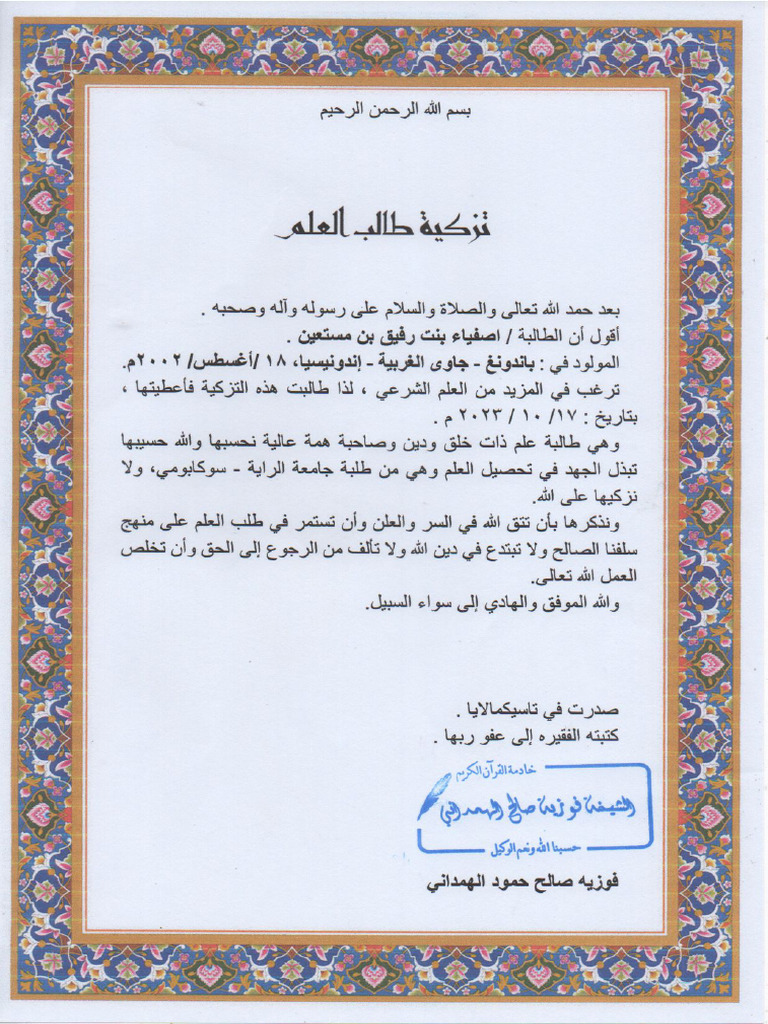 بسم الله الرحمن الرحيم
تزكية طالب العلم
بعد حمد الله تعالى والصلاة والسلام على رسوله وآله وصحبه .
أقول أن الطالبة / اصفياء بنت رفيق بن مستعين .
المولود في : باندونغ - جاوى الغربية - إندونيسيا، ١٨ /أغسطس/ ٢٠٠٢م.
ترغب في المزيد من العلم الشرعي ، لذا طالبت هذه التزكية فأعطيتها ،
بتاريخ : ١٧/ ١٠ / ٢٠٢٣ م .
وهي طالبة علم ذات خلق ودين وصاحبة همة عالية نحسبها والله حسيبها
تبذل الجهد في تحصيل العلم وهي من طلبة جامعة الراية - سوكابومي، ولا
نزكيها على الله.
ونذكرها بأن تتق الله في السر والعلن وأن تستمر في طلب العلم على منهج
سلفنا الصالح ولا تبتدع في دين الله ولا تألف من الرجوع إلى الحق وأن تخلص
العمل الله تعالى.
والله الموفق والهادي إلى سواء السبيل.
صدرت في تاسيكمالايا .
كتبته الفقيره إلى عفو ربها .
خادمة القرآن الكريم
الشيخة فوزية صالح الهمداني
حسبنا الله ونعم الوكيل
فوزيه صالح حمود الهمداني